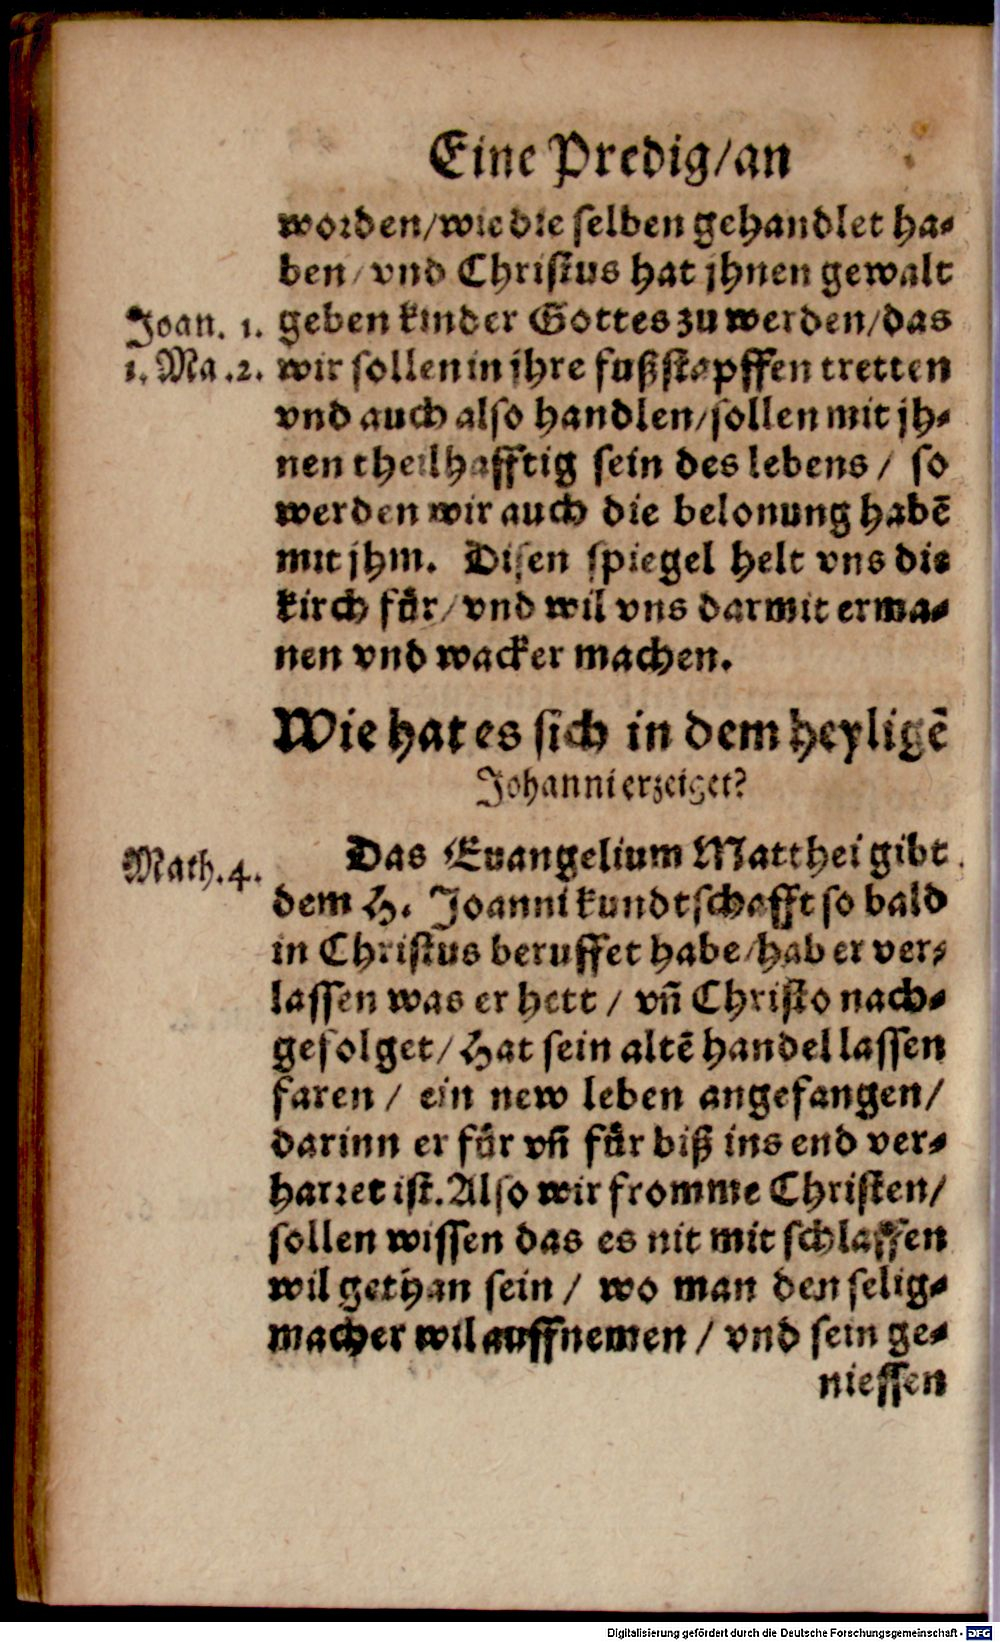 Eine Predig/an
worden/wie die selben gehandlet ha-
ben/vnd Christus hat jhnen gewalt
Joan. 1. geben kinder Gottes zu werden/das
1. Ma .2. wir sollen in jhre fußstapffen tretten
vnd auch also handlen/sollen mit jh-
nen theilhafftig sein des lebens/ so
werden wir auch die belonung habē
mit jhm. Disen spiegel helt vns die
kirch fůr/vnd wil vns darmit erma-
nen vnd wacker machen.
Wie hat es sich in dem heyligē
Johanni erzeiget?
Das Euangelium Matthei gibt
Math.4. dem H. Joanni kundtschafft so bald
in Christus beruffet habe/hab er ver-
lassen was er hett / vñ Christo nach-
gefolget/ Hat sein altē handel lassen
faren / ein new leben angefangen/
darinn er fůr vñ fůr biß ins end ver-
harret ist. Also wir fromme Christen/
sollen wissen das es nit mit schlaffen
wil gethan sein / wo man den selig-
macher wil auffnemen / vnd sein ge-
niessen
Digitalisierung gefördert durch die Deutsche Forschungsgemeinschaft - DFG